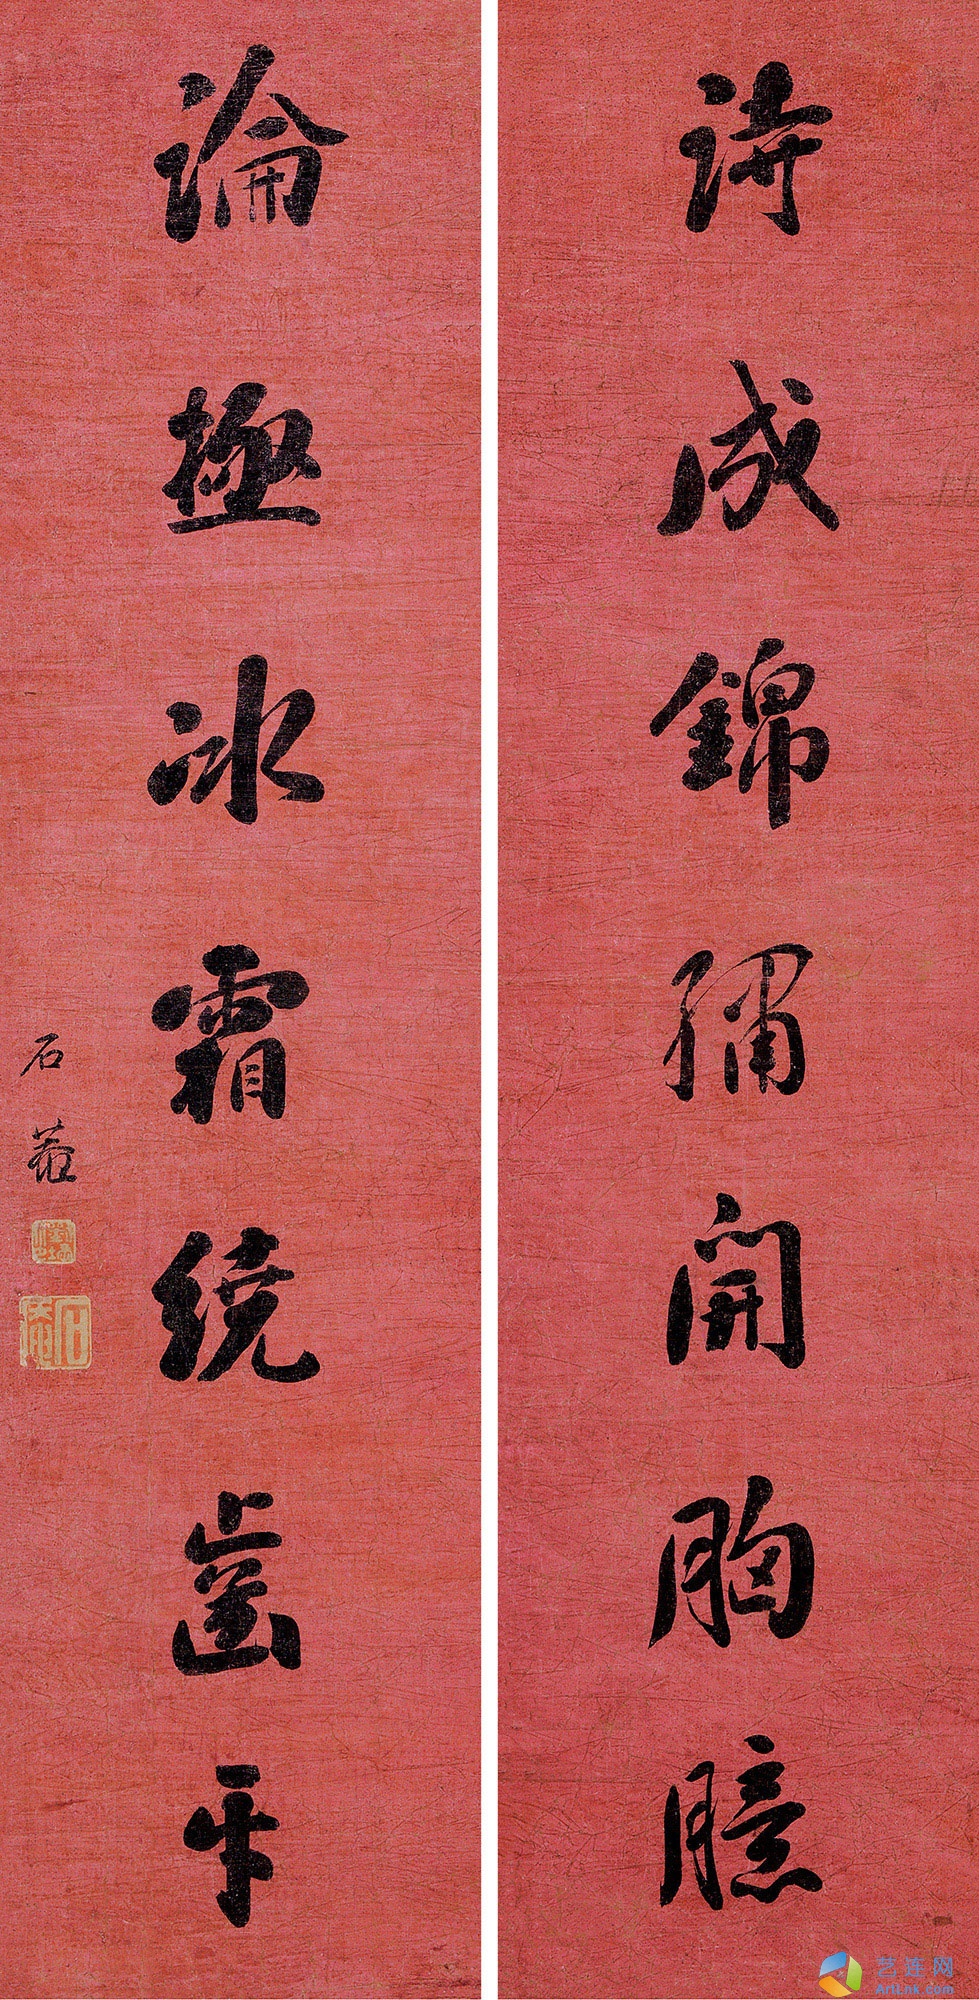 詩成錦繡開胸臆
論極冰霜繞齒牙
石菴
艺连网
ArtLnk.com